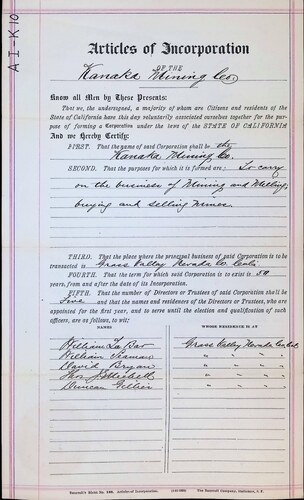 A-I-K-10
Articles of Incorporation
OF THE
Kanaka Mining Co.
Know all Men by These Presents:
That we, the undersigned, a majority of whom are Citizens and residents of the
State of California have this day voluntarily associated ourselves together for the pur-
pose of forming a Corporation under the laws of the STATE OF CALIFORNIA
And we Hereby Certify:
FIRST. That the name of said Corporation shall be the
Kanaka Mining Co.
SECOND. That the purposes for which it is formed are: To carry
on the business of Mining and Milling,
buying and selling mines.
THIRD. That the place where the principal business of said Corporation is to be
transacted is Grass Valley Nevada Co. Cala.
FOURTH. That the term for which said Corporation is to exist is 50
years, from and after the date of its Incorporation.
FIFTH. That the number of Directors or Trustees of said Corporation shall be
Five and that the names and residences of the Directors or Trustees, who are
appointed for the first year, and to serve until the election and qualification of such
officers, are as follows, to wit:
NAMES WHOSE RESIDENCE IS AT
William La Bar Grass Valley Nevada Co. Cal.
William " " "
David Bryan " " "
" " "
Duncan Gillies " " "
Bancroft's Blank No. Articles of Incorporation. The Bancroft Company, Stationers, S. F.